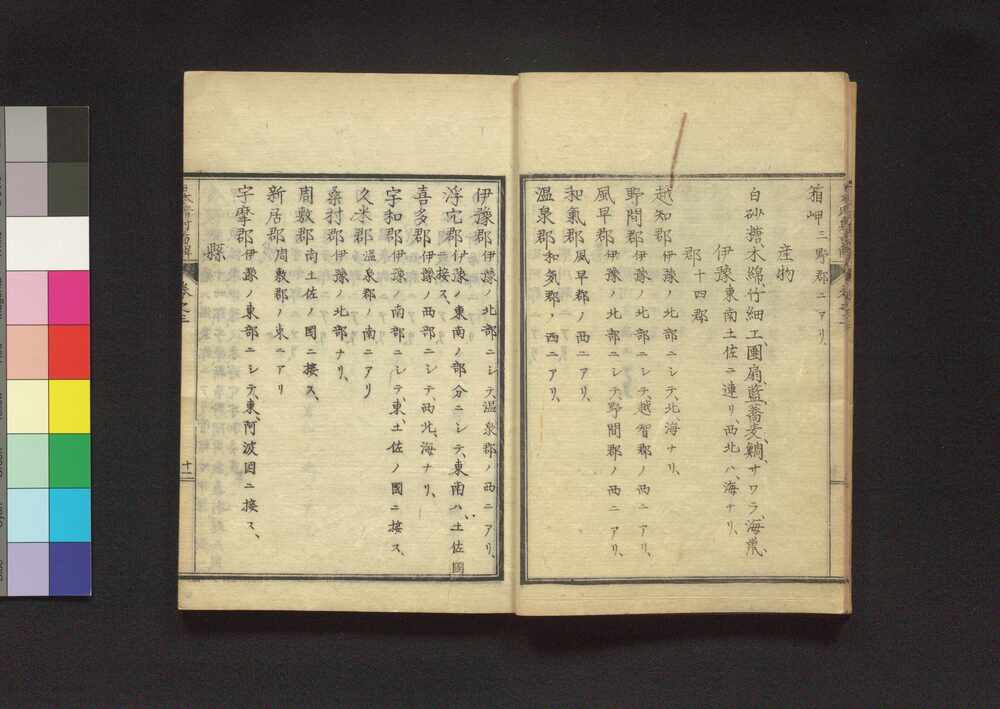 箱岬三野郡ニアリ、
産物
白砂糖、木綿、竹細工、團扇、藍、蕎麦、鯛、サワラ、海鼠、
伊豫東南土佐ニ連リ、西北ハ、海ナリ、
郡十四郡
越知郡伊豫ノ北部ニシテ、北海ナリ、
野間郡伊豫ノ北部ニシテ、越智郡ノ西ニアリ、
風早郡伊豫ノ北部ニシテ、野間郡ノ西ニアリ、
和氣郡風早郡ノ西ニアリ、
温泉郡和気郡ノ西ニアリ、
伊豫郡伊豫ノ北部ニシテ、温泉郡ノ西ニアリ、
浮穴郡伊豫ノ東南ノ部分ニシテ、東南ハ土佐國
ニ接ス、
喜多郡伊豫ノ西部ニシテ、西北、海ナリ、
宇和郡伊豫ノ南部ニシテ、東、土佐ノ國ニ接ス、
久米郡温泉郡ノ南ニアリ
桑村郡伊豫ノ北部ナリ、
周敷郡南土佐ノ國ニ接ス、
新居郡周敷郡ノ東ニアリ
宇摩郡伊豫ノ東部ニシテ、東、阿波國ニ接ス、
縣
卷之三
十一